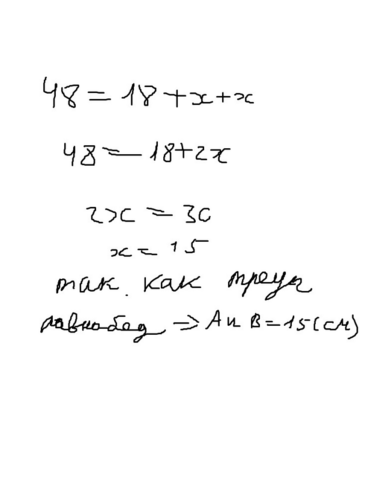 48 = 18 + x + x
48 = 18 + 2x
2x = 30
x = 15
так. как треуг
равнобед => A и B = 15 (см)